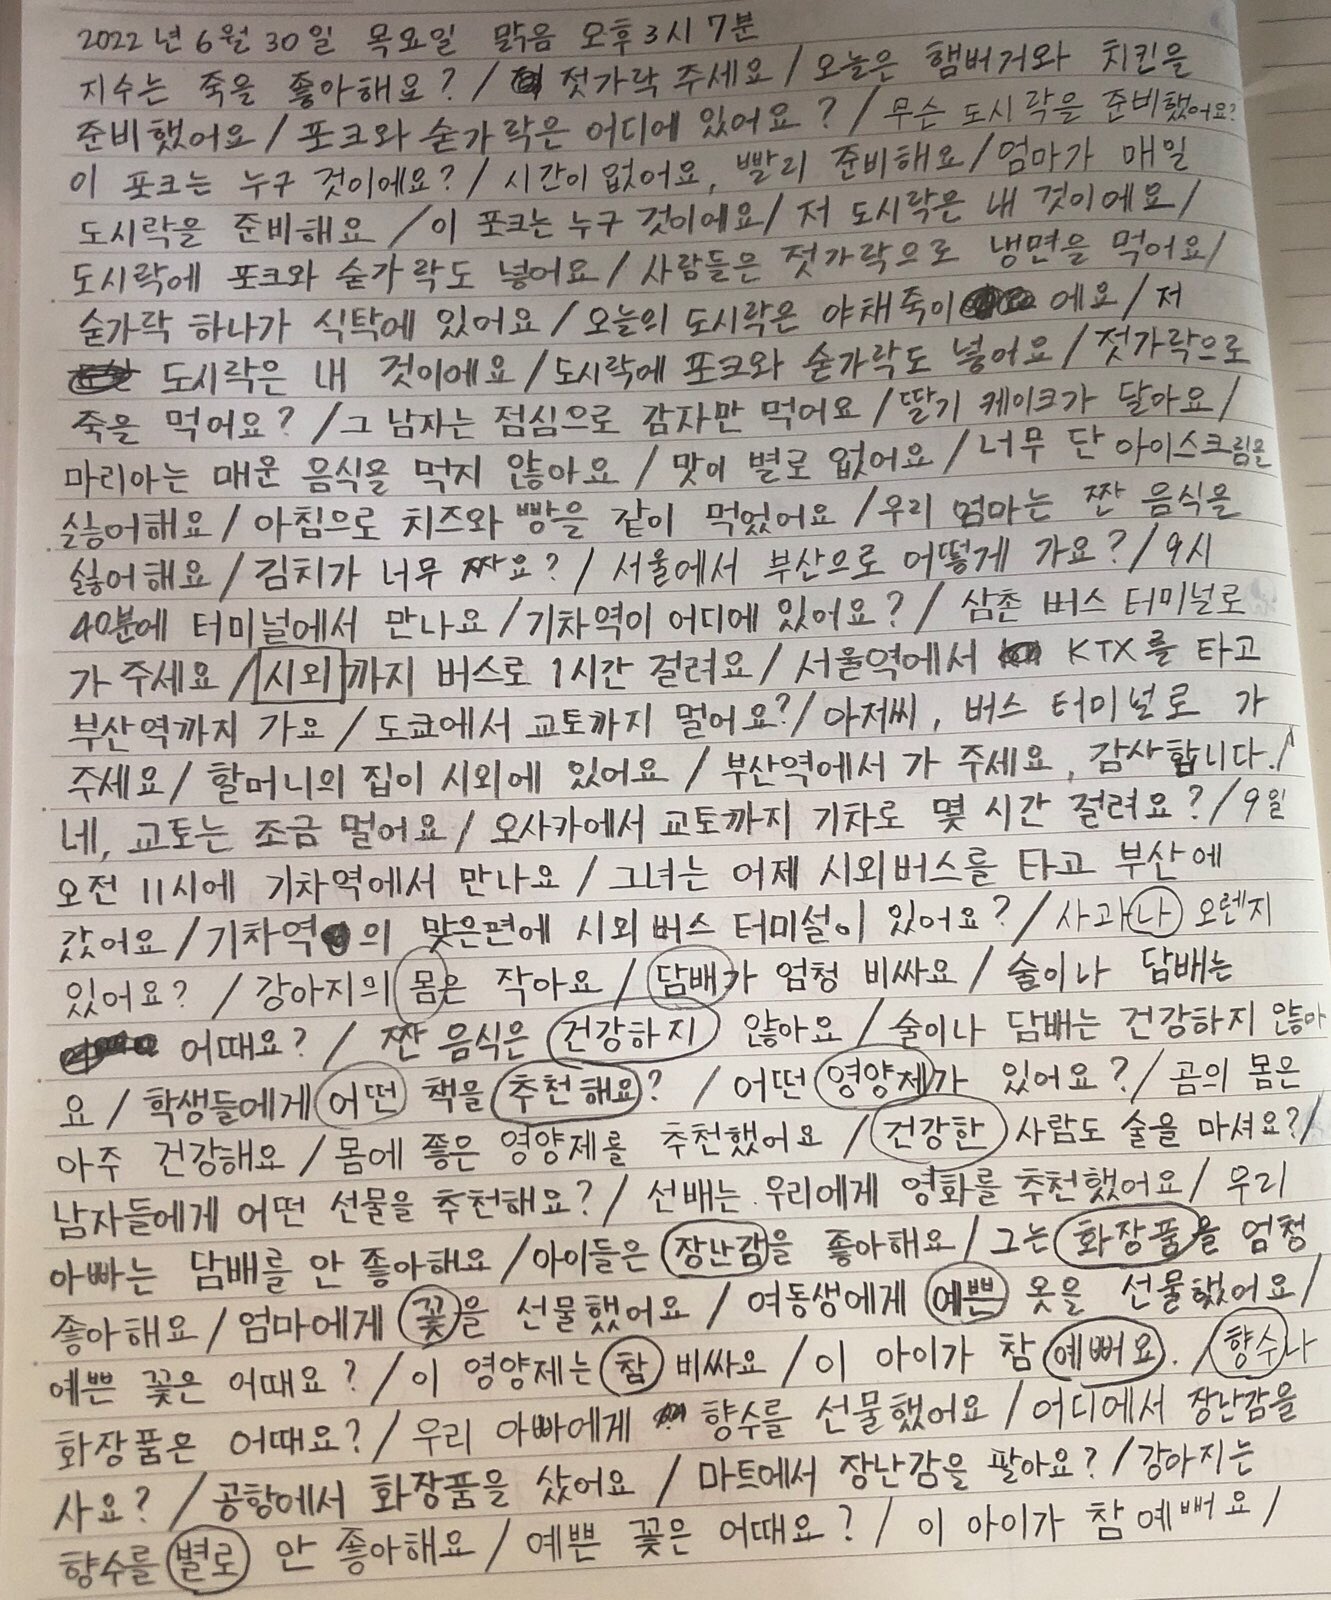 2022년 6월 30일 목요일 맑음 오후3시 7분
지수는 죽을 좋아해요? / 젓가락 주세요 / 오늘은 햄버거와 치킨을
준비했어요 / 포크와 숟가락은 어디에 있어요? / 무슨 도시락을 준비했어요?
이 포크는 누구 것이에요? / 시간이 없어요, 빨리 준비해요 / 엄마가 매일
도시락을 준비해요 / 이 포크는 누구 것이에요 / 저 도시락은 내 것이에요 /
도시락에 포크와 숟가락도 넣어요 / 사람들은 젓가락으로 냉면을 먹어요 /
숟가락 하나가 식탁에 있어요 / 오늘의 도시락은 야채죽이 에요 / 저
도시락은 내 것이에요 / 도시락에 포크와 숟가락도 넣어요 / 젓가락으로
죽을 먹어요? / 그 남자는 점심으로 감자만 먹어요 / 딸기 케이크가 달아요 /
마리아는 매운 음식을 먹지 않아요 / 맛이 별로 없어요 / 너무 단 아이스크림을
싫어해요 / 아침으로 치즈와 빵을 같이 먹었어요 / 우리 엄마는 짠 음식을
싫어해요 / 김치가 너무 짜요? / 서울에서 부산으로 어떻게 가요? / 9시
40분에 터미널에서 만나요 / 기차역이 어디에 있어요? / 삼촌 버스 터미널로
가 주세요 / 시외까지 버스로 1시간 걸려요 / 서울역에서 KTX를 타고
부산역까지 가요 / 도쿄에서 교토까지 멀어요? / 아저씨, 버스 터미널로 가
주세요 / 할머니의 집이 시외에 있어요 / 부산역에서 가 주세요, 감사합니다. /
네, 교토는 조금 멀어요 / 오사카에서 교토까지 기차로 몇 시간 걸려요? / 9일
오전 11시에 기차역에서 만나요 / 그녀는 어제 시외버스를 타고 부산에
갔어요 / 기차역의 맞은편에 시외 버스 터미설이 있어요? / 사과나 오렌지
있어요? / 강아지의 몸은 작아요 / 담배가 엄청 비싸요 / 술이나 담배는
어때요? / 짠 음식은 건강하지 않아요 / 술이나 담배는 건강하지 않아
요 / 학생들에게 어떤 책을 추천해요? / 어떤 영양제가 있어요? / 곰의 몸은
아주 건강해요 / 몸에 좋은 영양제를 추천했어요 / 건강한 사람도 술을 마셔요? /
남자들에게 어떤 선물을 추천해요? / 선배는 우리에게 영화를 추천했어요 / 우리
아빠는 담배를 안 좋아해요 / 아이들은 장난감을 좋아해요 / 그는 화장품을 엄청
좋아해요 / 엄마에게 꽃을 선물했어요 / 여동생에게 예쁜 옷을 선물했어요 /
예쁜 꽃은 어때요? / 이 영양제는 참 비싸요 / 이 아이가 참 예뻐요. / 향수나
화장품은 어때요? / 우리 아빠에게 향수를 선물했어요 / 어디에서 장난감을
사요? / 공항에서 화장품을 샀어요 / 마트에서 장난감을 팔아요? / 강아지는
향수를 별로 안 좋아해요 / 예쁜 꽃은 어때요? / 이 아이가 참 예뻐요 /